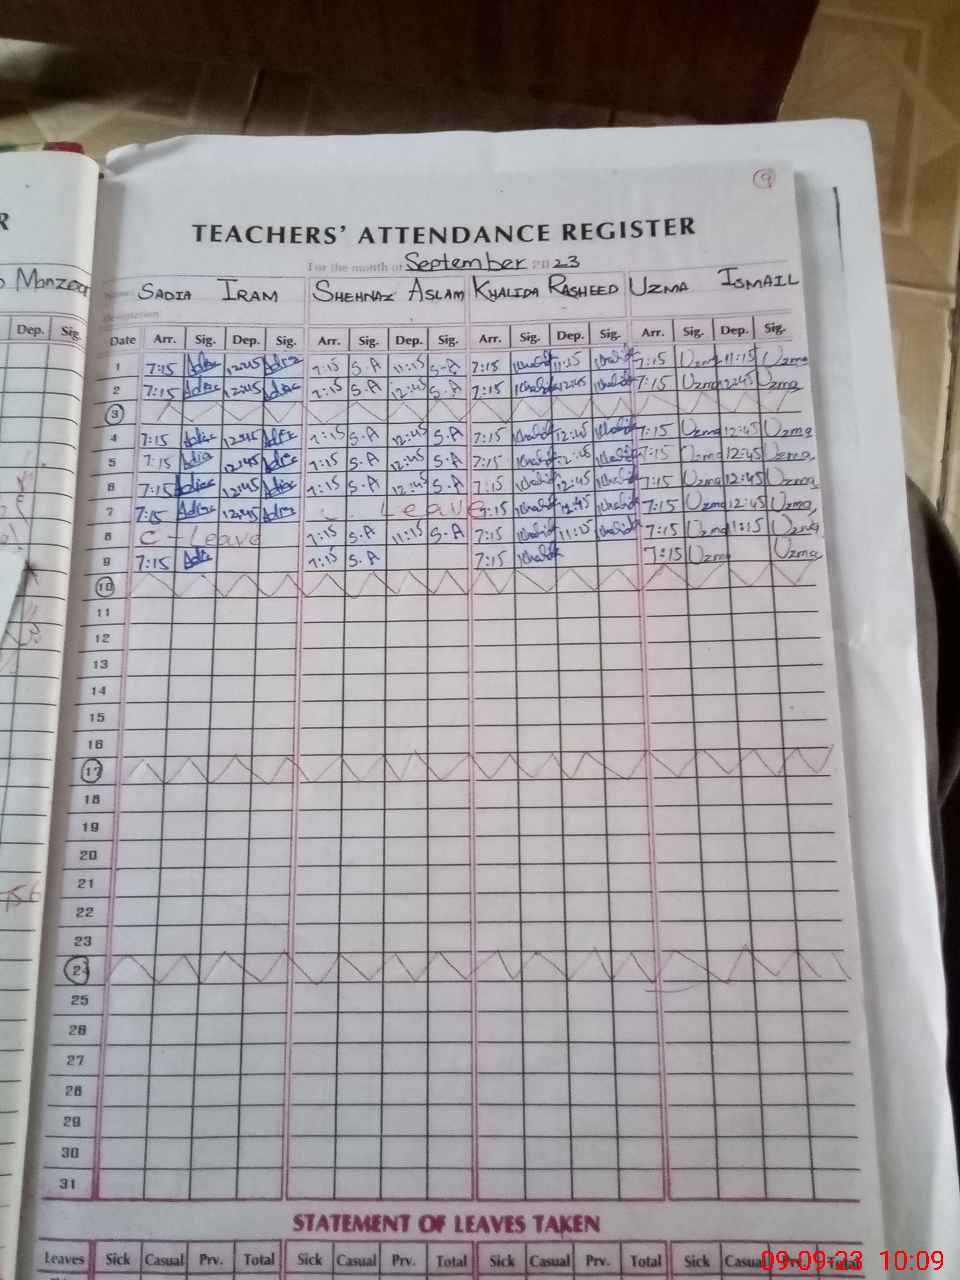 R
Manzoor
Dep. Sig.
9
TEACHERS' ATTENDANCE REGISTER
For the month of September 2023
SADIA IRAM SHEHNAZ ASLAM KHALIDA RASHEED UZMA ISMAIL
Date Arr. Sig. Dep. Sig. Arr. Sig. Dep. Sig. Arr. Sig. Dep. Sig. Arr. Sig. Dep. Sig.
1 7:15 12:45 7:15 S.A 11:15 S.A 7:15 Khalida 11:15 Khalida 7:15 Uzma 11:15 Uzma
2 7:15 12:45 7:15 S.A 12:45 S.A 7:15 Khalida 12:45 Khalida 7:15 Uzma 12:45 Uzma
3
4 7:15 12:45 7:15 S.A 12:45 S.A 7:15 Khalida 12:45 Khalida 7:15 Uzma 12:45 Uzma
5 7:15 12:45 7:15 S.A 12:45 S.A 7:15 Khalida 12:45 Khalida 7:15 Uzma 12:45 Uzma
6 7:15 12:45 7:15 S.A 12:45 S.A 7:15 Khalida 12:45 Khalida 7:15 Uzma 12:45 Uzma
7 7:15 12:45 Leave 7:15 Khalida 12:45 Khalida 7:15 Uzma 12:45 Uzma
8 C - Leave 7:15 S.A 11:15 S.A 7:15 Khalida 11:15 Khalida 7:15 Uzma 11:15 Uzma
9 7:15 7:15 S.A 7:15 Khalida 7:15 Uzma Uzma
10
11
12
13
14
15
16
17
18
19
20
21
22
23
24
25
26
27
28
29
30
31
STATEMENT OF LEAVES TAKEN
Leaves Sick Casual Prv. Total Sick Casual Prv. Total Sick Casual Prv. Total Sick Casual Prv. Total
09-09-23 10:09